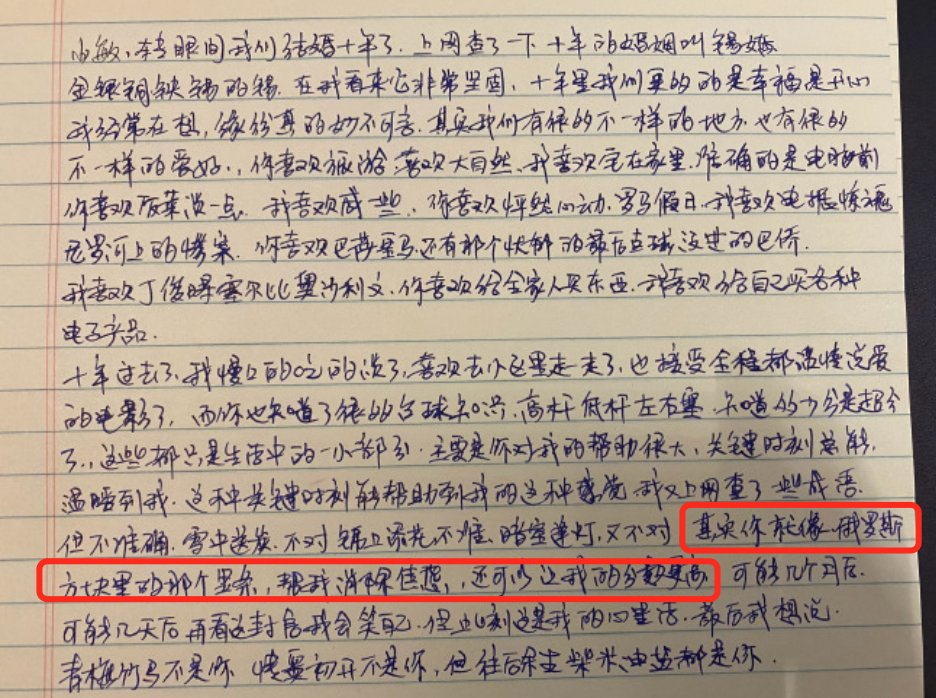 小敏、转眼间我们结婚十年了、上网查了一下十年的婚姻叫锡婚
金银铜铁锡的锡、在我看来它非常坚固、十年里我们要的的是幸福是开心
我经常在想,缘份真的妙不可言、其实我们有很多不一样的地方、也有很多
不一样的爱好、你喜欢旅游 喜欢大自然、我喜欢宅在家里、准确的是电脑前
你喜欢饭菜淡一点、我喜欢咸一些、你喜欢怦然心动、罗马假日、我喜欢电锯惊魂
尼罗河上的惨案、你喜欢巴萨皇马、还有那个忧郁的最后点球没进的巴乔、
我喜欢丁俊晖塞尔比奥沙利文、你喜欢给全家人买东西、我喜欢给自己买各种
电子产品、
十年过去了、我慢慢的吃的淡了、喜欢去小区里走一走了、也接受全程都温情浪漫
的电影了、而你也知道了很多台球知识、高杆低杆左右塞、知道多少分是超分
了、这些都只是生活中的一小部分、主要是你对我的帮助很大、关键时刻总能
温暖到我、这种关键时刻能帮助到我的这种感觉 我又上网查了一些成语、
但不准确、雪中送炭、不对 锦上添花不准、暗室逢灯、又不对 其实你就像俄罗斯
方块里的那个竖条,帮我消除焦虑,还可以让我的分数更高 可能几个月后、
可能几天后再看这封信我会笑自己、但此刻这是我的心里话、最后我想说、
青梅竹马不是你 情窦初开不是你,但往后余生柴米油盐都是你、